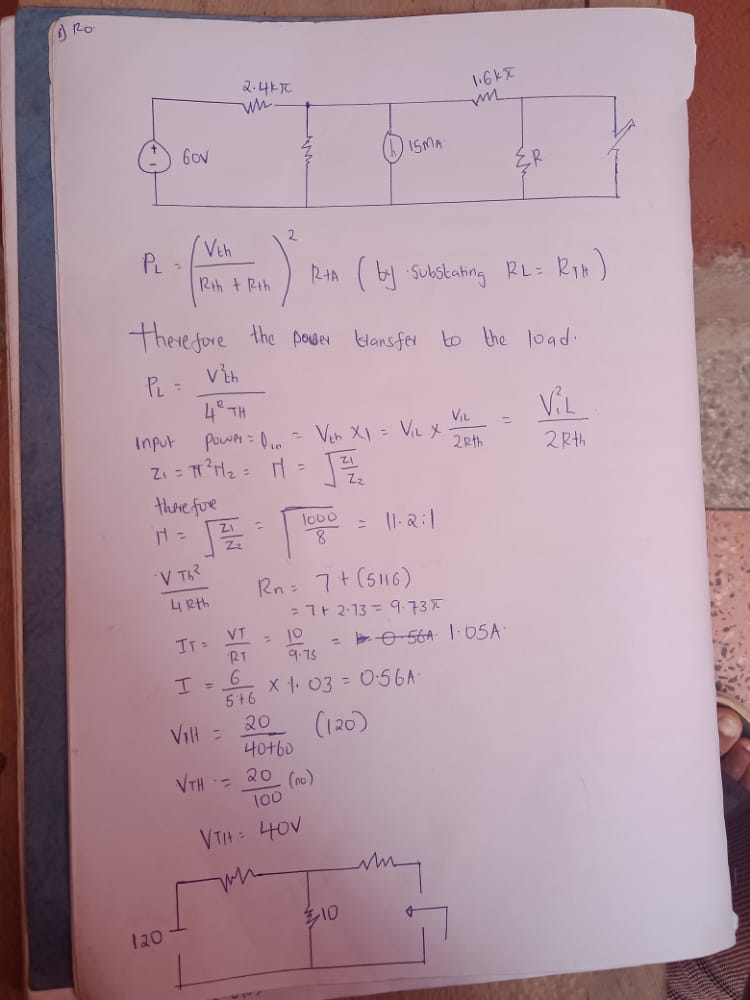 1) Ro
2.4kπ
1.6kπ
+
-
60V
15MA
R
PL = (Vth / Rth + Rth)² RtA ( by substating RL = RTH )
therefore the power transfer to the load.
PL = V²th / 4R TH
Input power = Pin = Vth X1 = ViL x ViL / 2Rth = Vi²L / 2Rth
Z1 = π²H2 = H = √Z1/Z2
therefore
H = √Z1/Z2 = √1000/8 = 11.2:1
V Th² / 4Rth
Rn = 7 + (5116)
= 7 + 2.73 = 9.73π
IT = VT/RT = 10/9.73 = 0.56A 1.05A.
I = 6/5+6 X 1.03 = 0.56A.
VTH = 20/40+60 (120)
VTH = 20/100 (no)
VTH = 40V
10
120